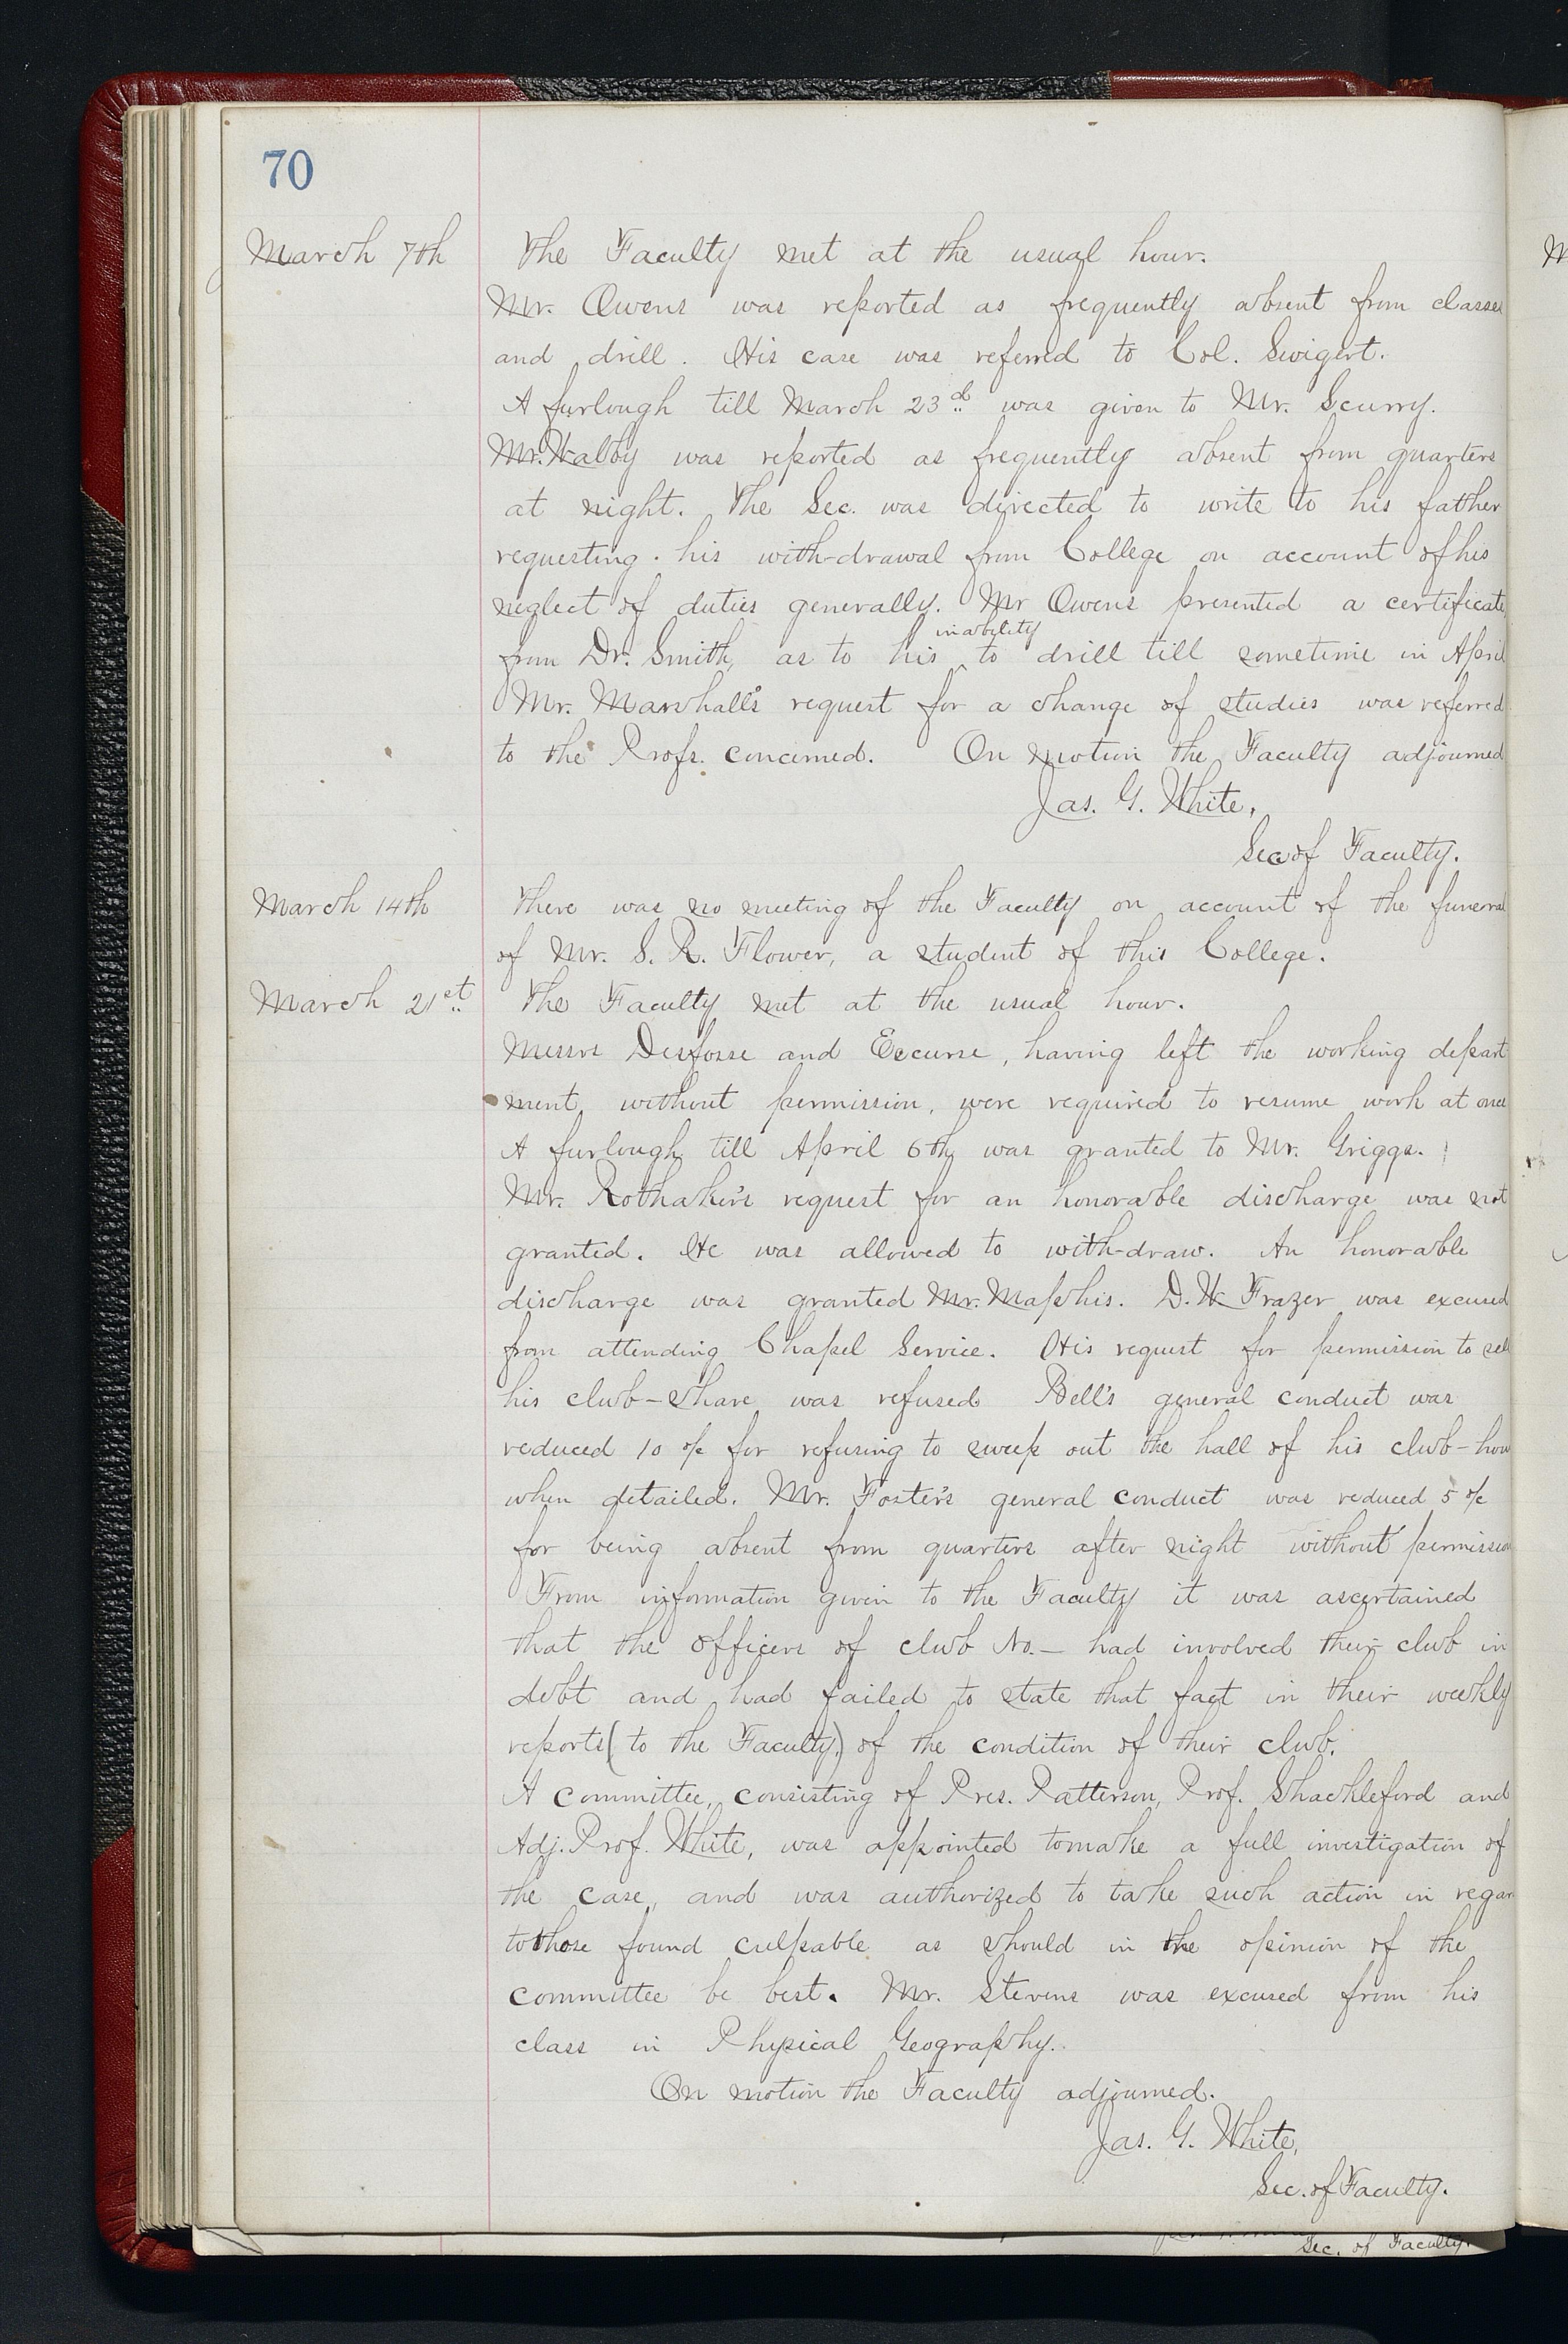 70
March 7th The Faculty met at the usual hour.
Mr. Owens was reported as frequently absent from classes
and drill. His case was referred to Col. Swigert.
A furlough till March 23d was given to Mr. Scurry.
Mr. was reported as frequently absent from quarters
at night. The Sec. was directed to write to his father
requesting his with-drawal from College on account of his
neglect of duties generally. Mr Owens presented a certificate
from Dr. Smith, as to his inability to drill till sometime in April
Mr. Marshall's request for a change of studies was referred
to the Profs. concerned. On motion the Faculty adjourned
Jas. G. White,
Sec of Faculty.
March 14th There was no meeting of the Faculty on account of the funeral
of Mr. S. R. Flower, a student of this College.
March 21st The Faculty met at the usual hour.
Messrs Desfosse and , having left the working depart
ment, without permission, were required to resume work at once
A furlough till April 6th was granted to Mr. Griggs.
Mr. Rothaker's request for an honorable discharge was not
granted. He was allowed to with-draw. An honorable
discharge was granted Mr. Maphis. D. H. Frazer was excused
from attending Chapel Service. His request for permission to sell
his club-share was refused Bell's general conduct was
reduced 10 % for refusing to sweep out the hall of his club-hou
when detailed. Mr. Foster's general conduct was reduced 5 %
for being absent from quarters after night without permission
From information given to the Faculty it was ascertained
that the officers of club No.— had involved their club in
debt and had failed to state that fact in their weekly
reports (to the Faculty.) of the condition of their club.
A committee, consisting of Pres. Patterson, Prof. Shackleford and
Adj. Prof. White, was appointed to make a full investigation of
the case, and was authorized to take such action in regar
to those found culpable as should in the opinion of the
committee be best. Mr. Stevens was excused from his
class in Physical Geography.
On motion the Faculty adjourned.
Jas. G. White,
Sec. of Faculty.
Sec. of Faculty.